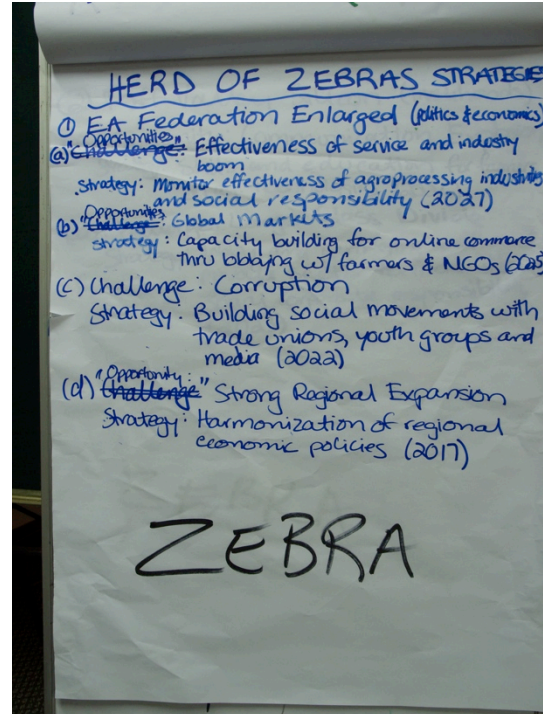 HERD OF ZEBRAS STRATEGIES
① EA Federation Enlarged (politics & economics)
Opportunities
(a) "Challenge": Effectiveness of service and industry
boom
Strategy: Monitor effectiveness of agroprocessing industries
and social responsibility (2027)
Opportunities
(b) "Challenge": Global Markets
strategy: Capacity building for online commerce
thru lobbying w/ farmers & NGOs (2025)
(c) Challenge: Corruption
Strategy: Building social movements with
trade unions, youth groups and
media (2022)
"Opportunity:
(d) Challenge" Strong Regional Expansion
Strategy: Harmonization of regional
economic policies (2017)
ZEBRA